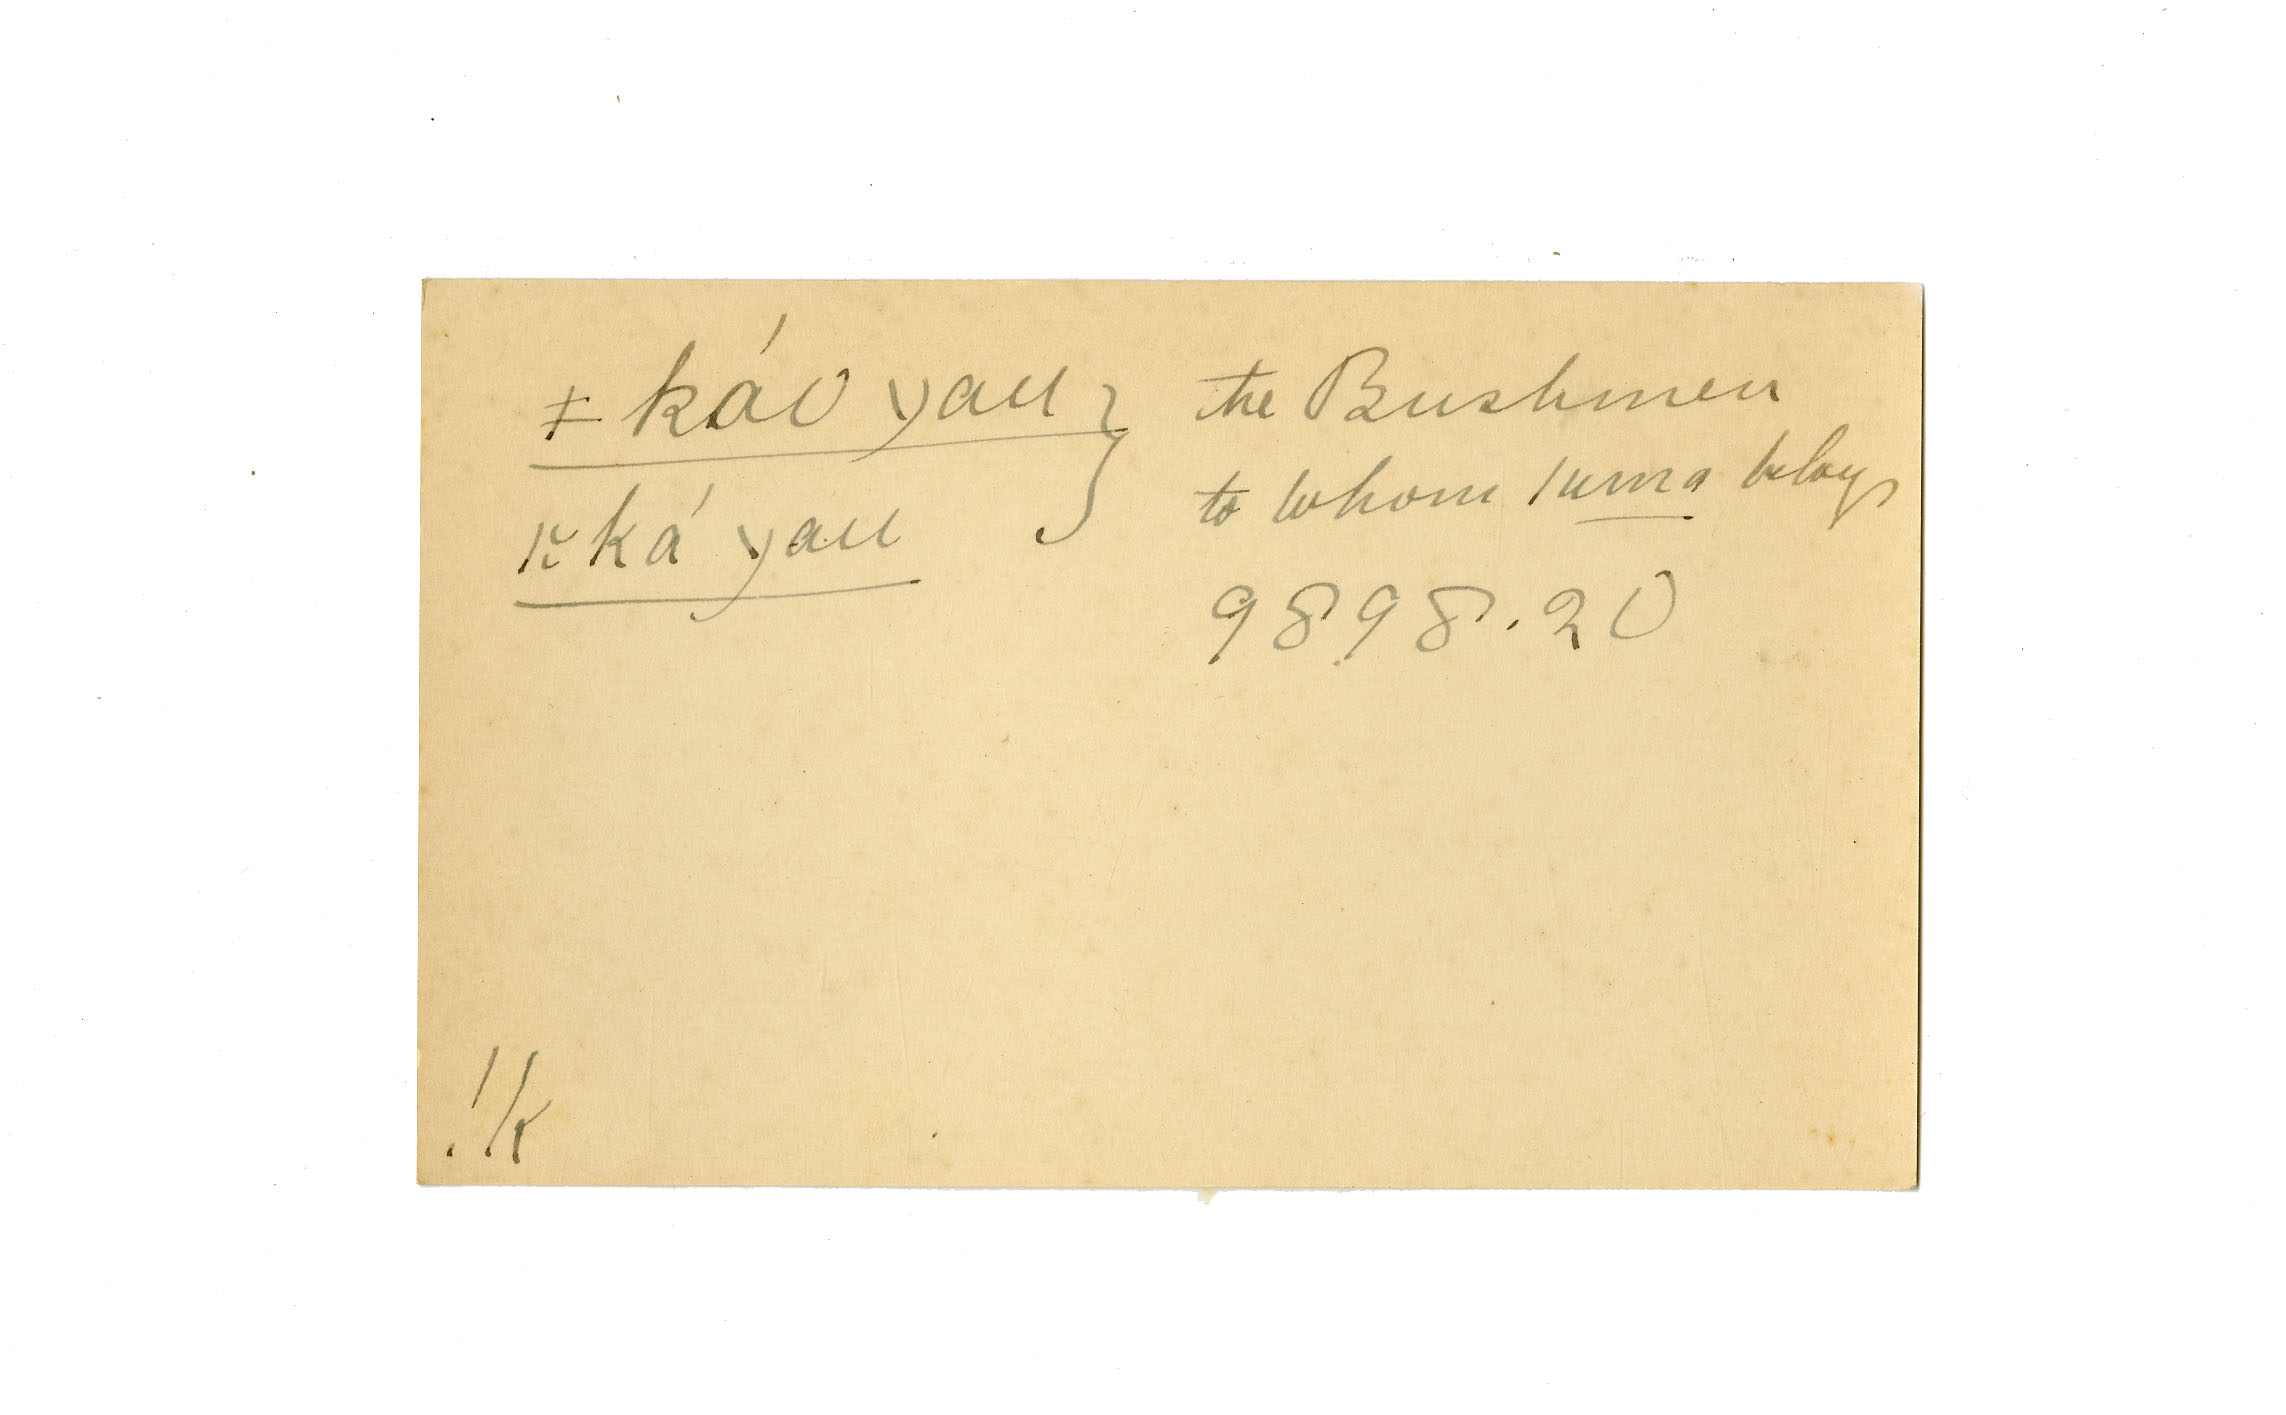 ǂkáo yau } the Bushmen
|̆ká yau to whom |uma belongs
9898.20
!k